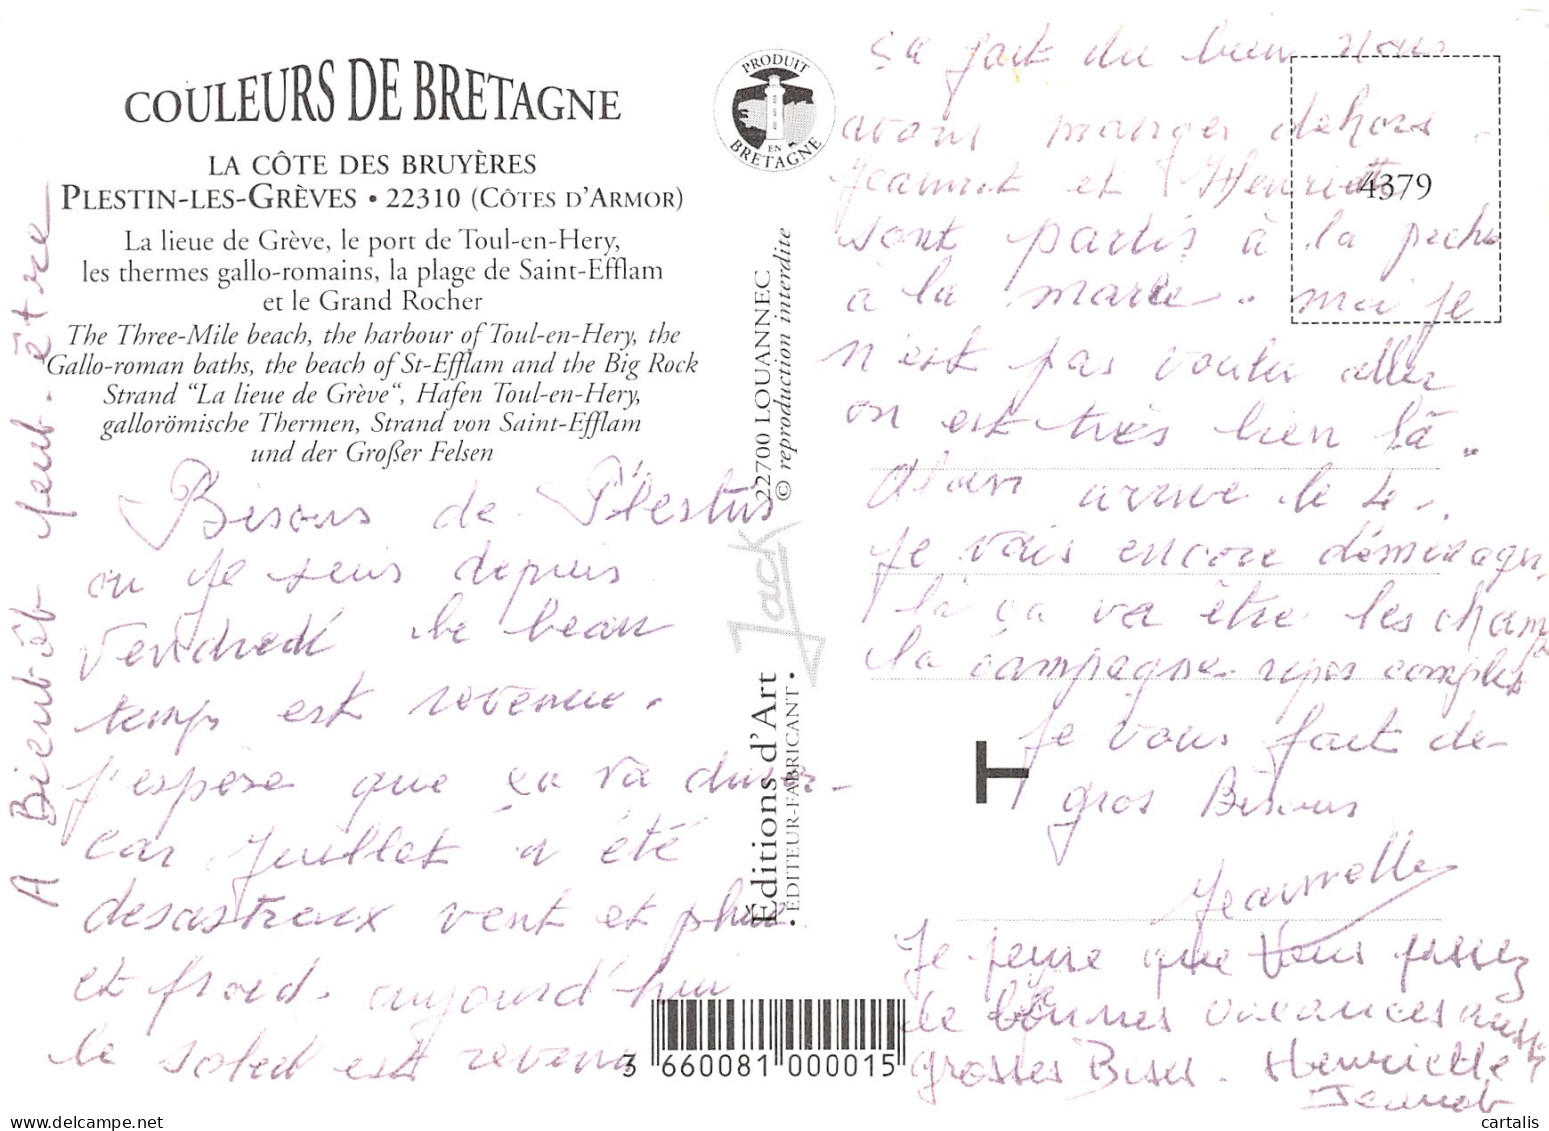 COULEURS DE BRETAGNE
LA CÔTE DES BRUYÈRES
PLESTIN-LES-GRÈVES • 22310 (CÔTES D'ARMOR)
La lieue de Grève, le port de Toul-en-Hery,
les thermes gallo-romains, la plage de Saint-Efflam
et le Grand Rocher
The Three-Mile beach, the harbour of Toul-en-Hery, the
Gallo-roman baths, the beach of St-Efflam and the Big Rock
Strand "La lieue de Grève", Hafen Toul-en-Hery,
gallorömische Thermen, Strand von Saint-Efflam
und der Großer Felsen
Bisous de Plestin
ou je suis depuis
Vendredi le beau
temps est revenue.
J'espère que ça va durer
car Juillet a été
desastreux vent et pluie
et froid. aujourd'hui
le soleil est revenu
A Bientôt peut-être
PRODUIT
EN
BRETAGNE
22700 LOUANNEC
© reproduction interdite
Jack
Éditions d'Art
• ÉDITEUR-FABRICANT •
3 660081 000015
4379
ça fait du bien nous
avons manger dehors.
Jeannot et Henriette
sont partis à la peche
à la marée. moi je
n'est pas voulu aller
on est très bien là.
Alan arrive le 4.
Je vais encore déménager
là ça va être les champs
la campagne repos complet
Je vous fait de
gros Bisous
Jeannette
Je pense que vous passez
de bonnes vacances aussi
grosses Bises. Henriette
Jeannot